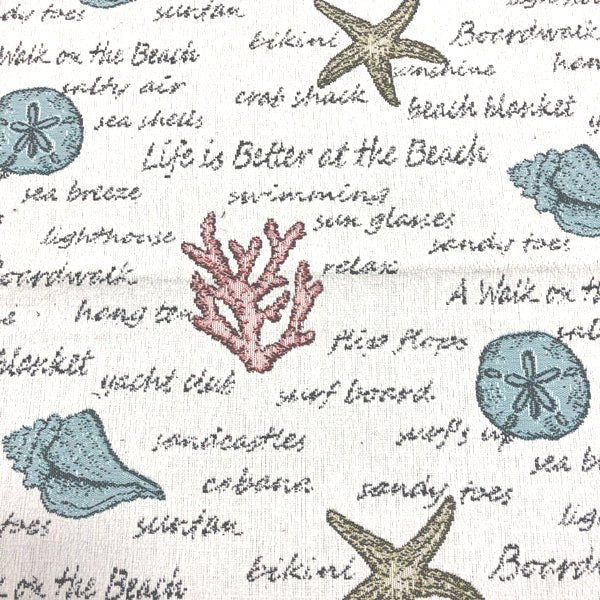 suntan
Boardwalk
bikini
Walk on the Beach
sunshine
salty air
crab shack
beach blanket
sea shells
Life is Better at the Beach
sea breeze
swimming
sun glasses
lighthouse
sandy toes
relax
Boardwalk
A Walk on th
hang ten
flip flops
blanket
yacht club
surf board
sandcastles
surf's up
cabana
sandy toes
toes
suntan
bikini
Boardw
k on the Beach